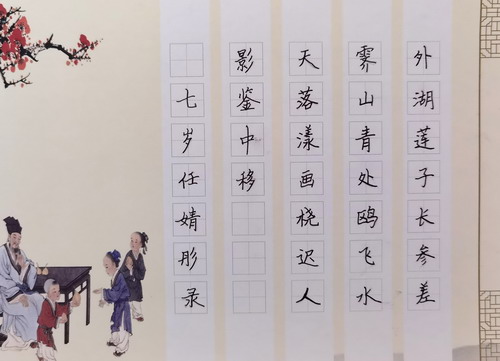 外湖莲子长参差
霁山青处鸥飞水
天落漾画桡迟人
影鉴中移
七岁任婧彤录